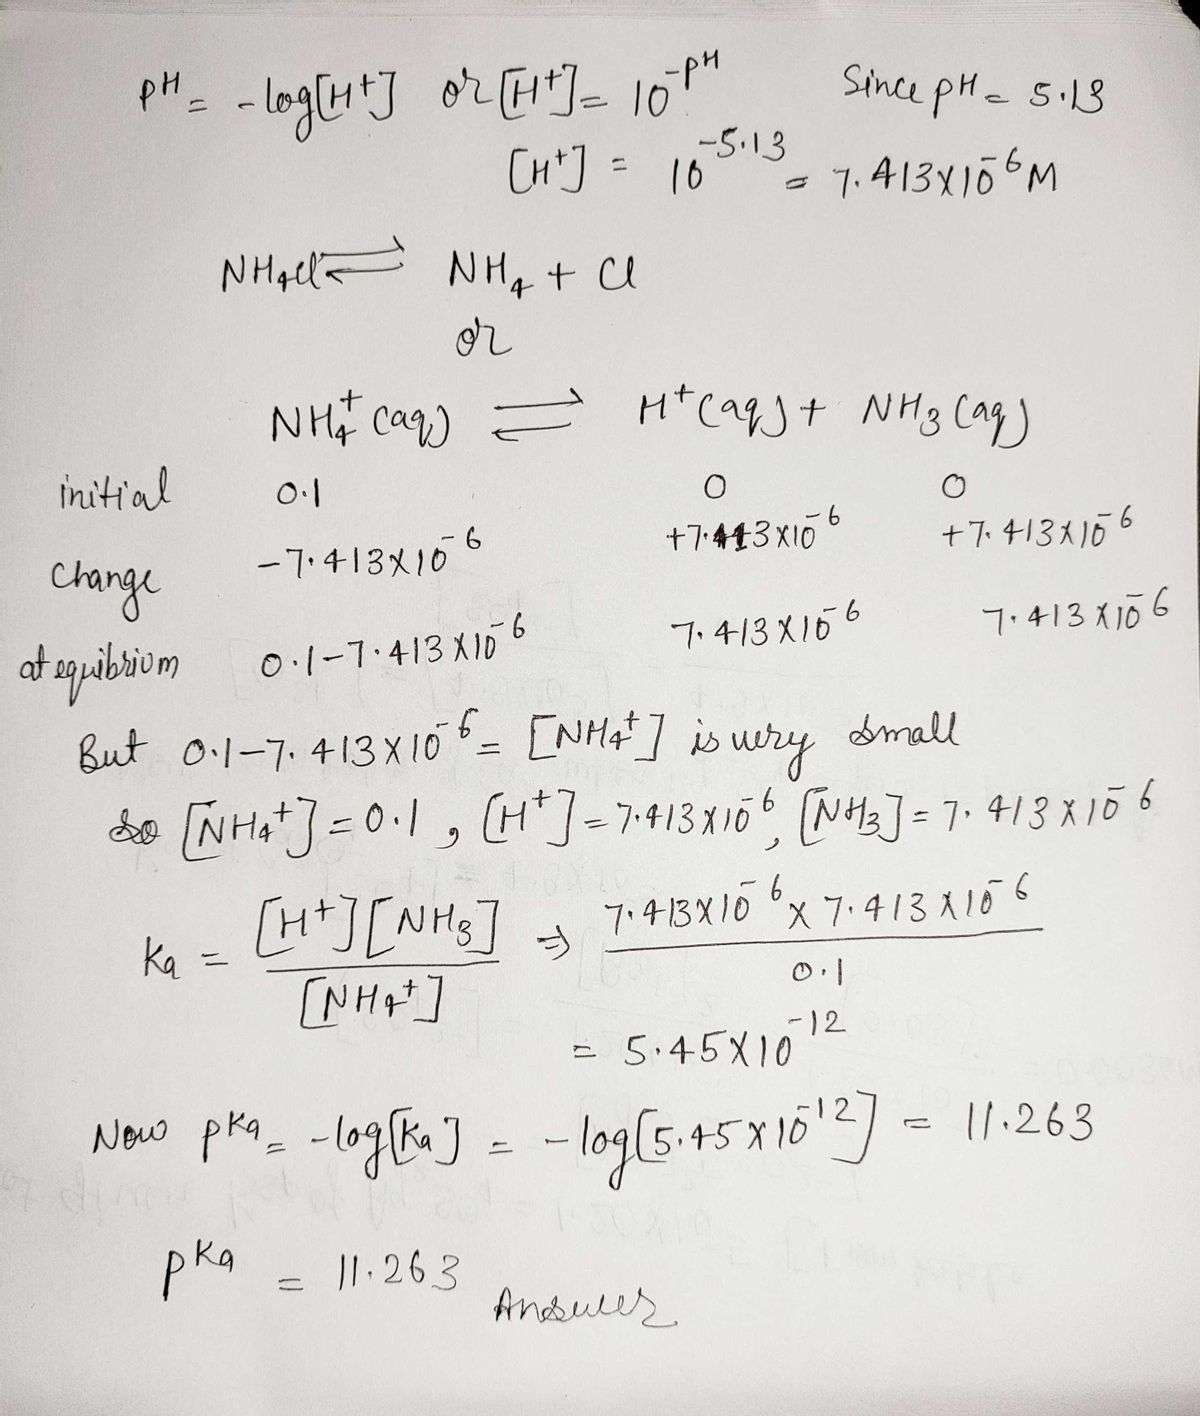 pH = -log[H+] or [H+] = 10^-pH Since pH = 5.13
[H+] = 10^-5.13 = 7.413X10^-6 M
NH4Cl ⇌ NH4 + Cl
or
NH4+ (aq) ⇌ H+(aq) + NH3 (aq)
initial 0.1 0 0
Change -7.413X10^-6 +7.413X10^-6 +7.413X10^-6
at equibrium 0.1-7.413X10^-6 7.413X10^-6 7.413X10^-6
But 0.1-7.413X10^-6 = [NH4+] is very small
So [NH4+] = 0.1, [H+] = 7.413X10^-6, [NH3] = 7.413X10^-6
Ka = [H+][NH3] / [NH4+] ⇒ 7.413X10^-6 X 7.413X10^-6 / 0.1
= 5.45X10^-12
Now pKa = -log[Ka] = -log[5.45X10^-12] = 11.263
pKa = 11.263 Answer